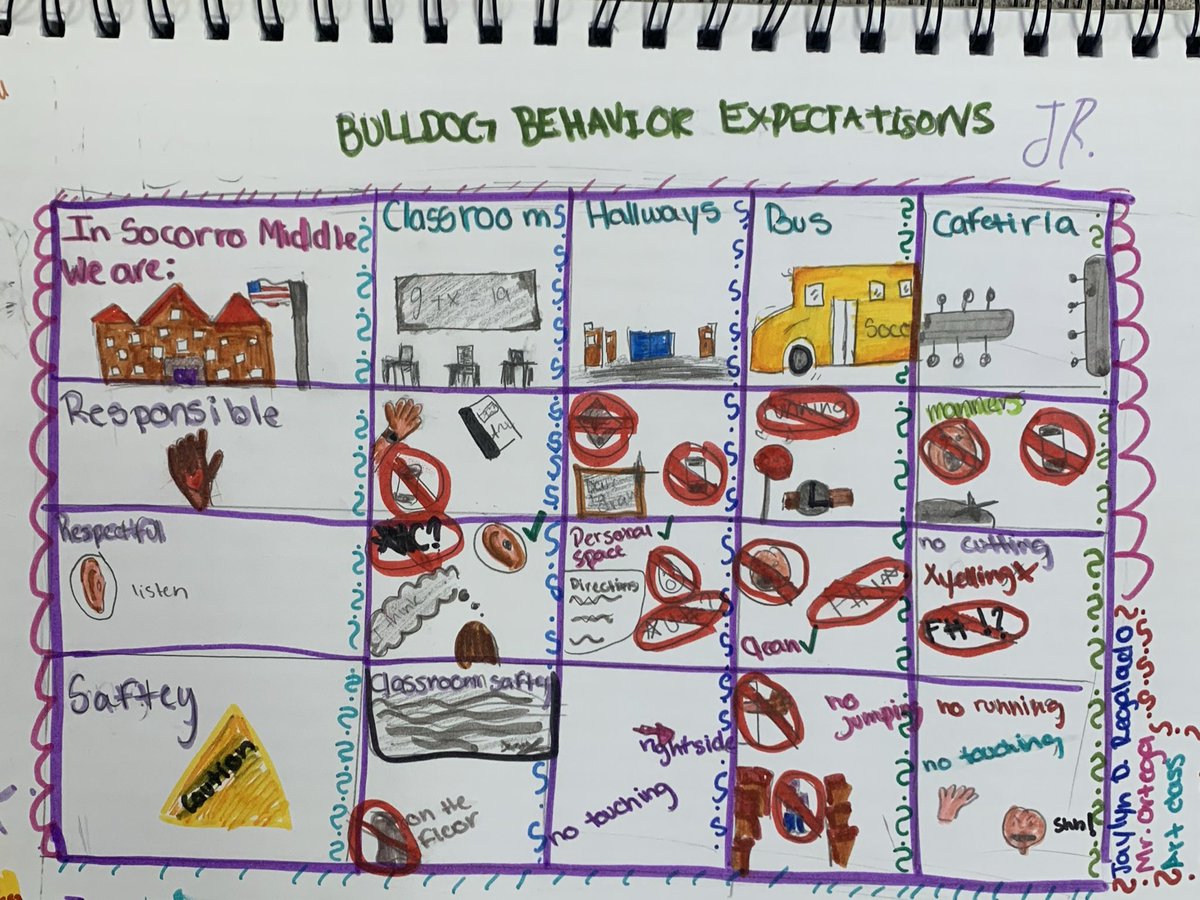 BULLDOG BEHAVIOR EXPECTATIsONS
JR.
In Socorro Middle
We are:
Classroom
Hallways
Bus
Cafetirla
g+x = 19
Soco
Responsible
running
manners
Respectful
listen
C?
think
Personal
space
Directions
clean
no cutting
XyellingX
F# !?
Saftey
Caution
Classroom saftey
on the
floor
rightside
no touching
no
jumping
no running
no touching
Shh!
Jaylyn D. Regalado
Mr. Ortega
Art class